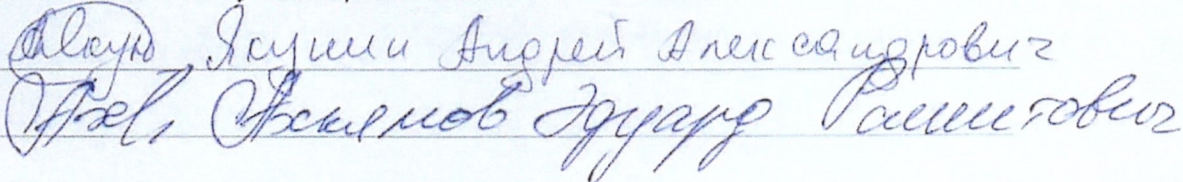 Якунин Андрей Александрович
Ахкямов Эдуард Рашитович